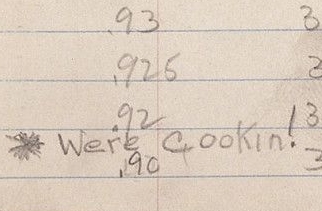 .93 3
.925 3
.92 3
Were Cookin!
.90 3